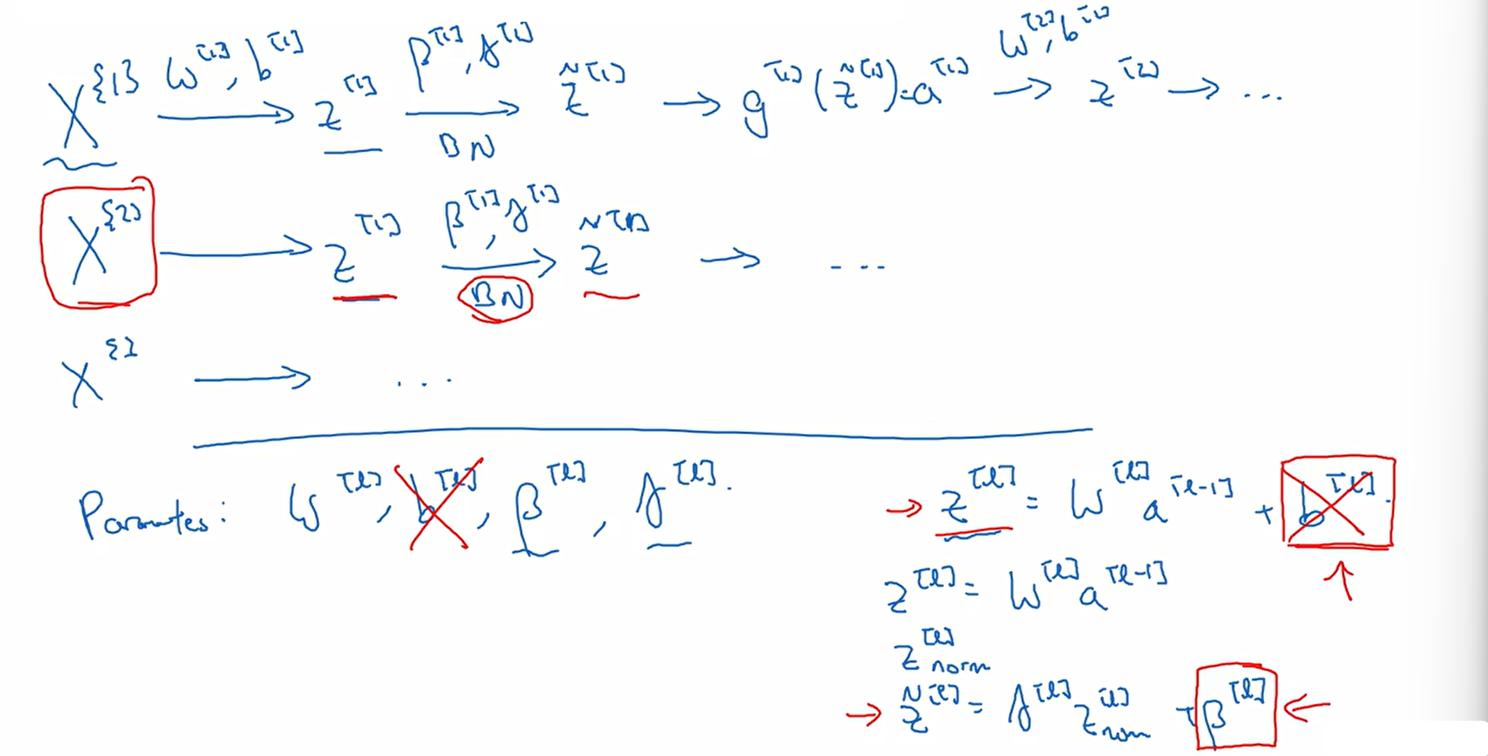 X^{1} W^[1], b^[1] → z^[1] β^[1], γ^[1] → BN z̃^[1] → g^[1](z̃^[1]) = a^[1] W^[2], b^[2] → z^[2] → ...
X^{2} → z^[1] β^[1], γ^[1] → BN z̃^[1] → ...
X^{} → ...
Parameters: W^[l], b^[l], β^[l], γ^[l].
→ z^[l] = W^[l] a^[l-1] + b^[l].
z^[l] = W^[l] a^[l-1]
z^[l]_norm
→ z̃^[l] = γ^[l] z^[l]_norm + β^[l] ←